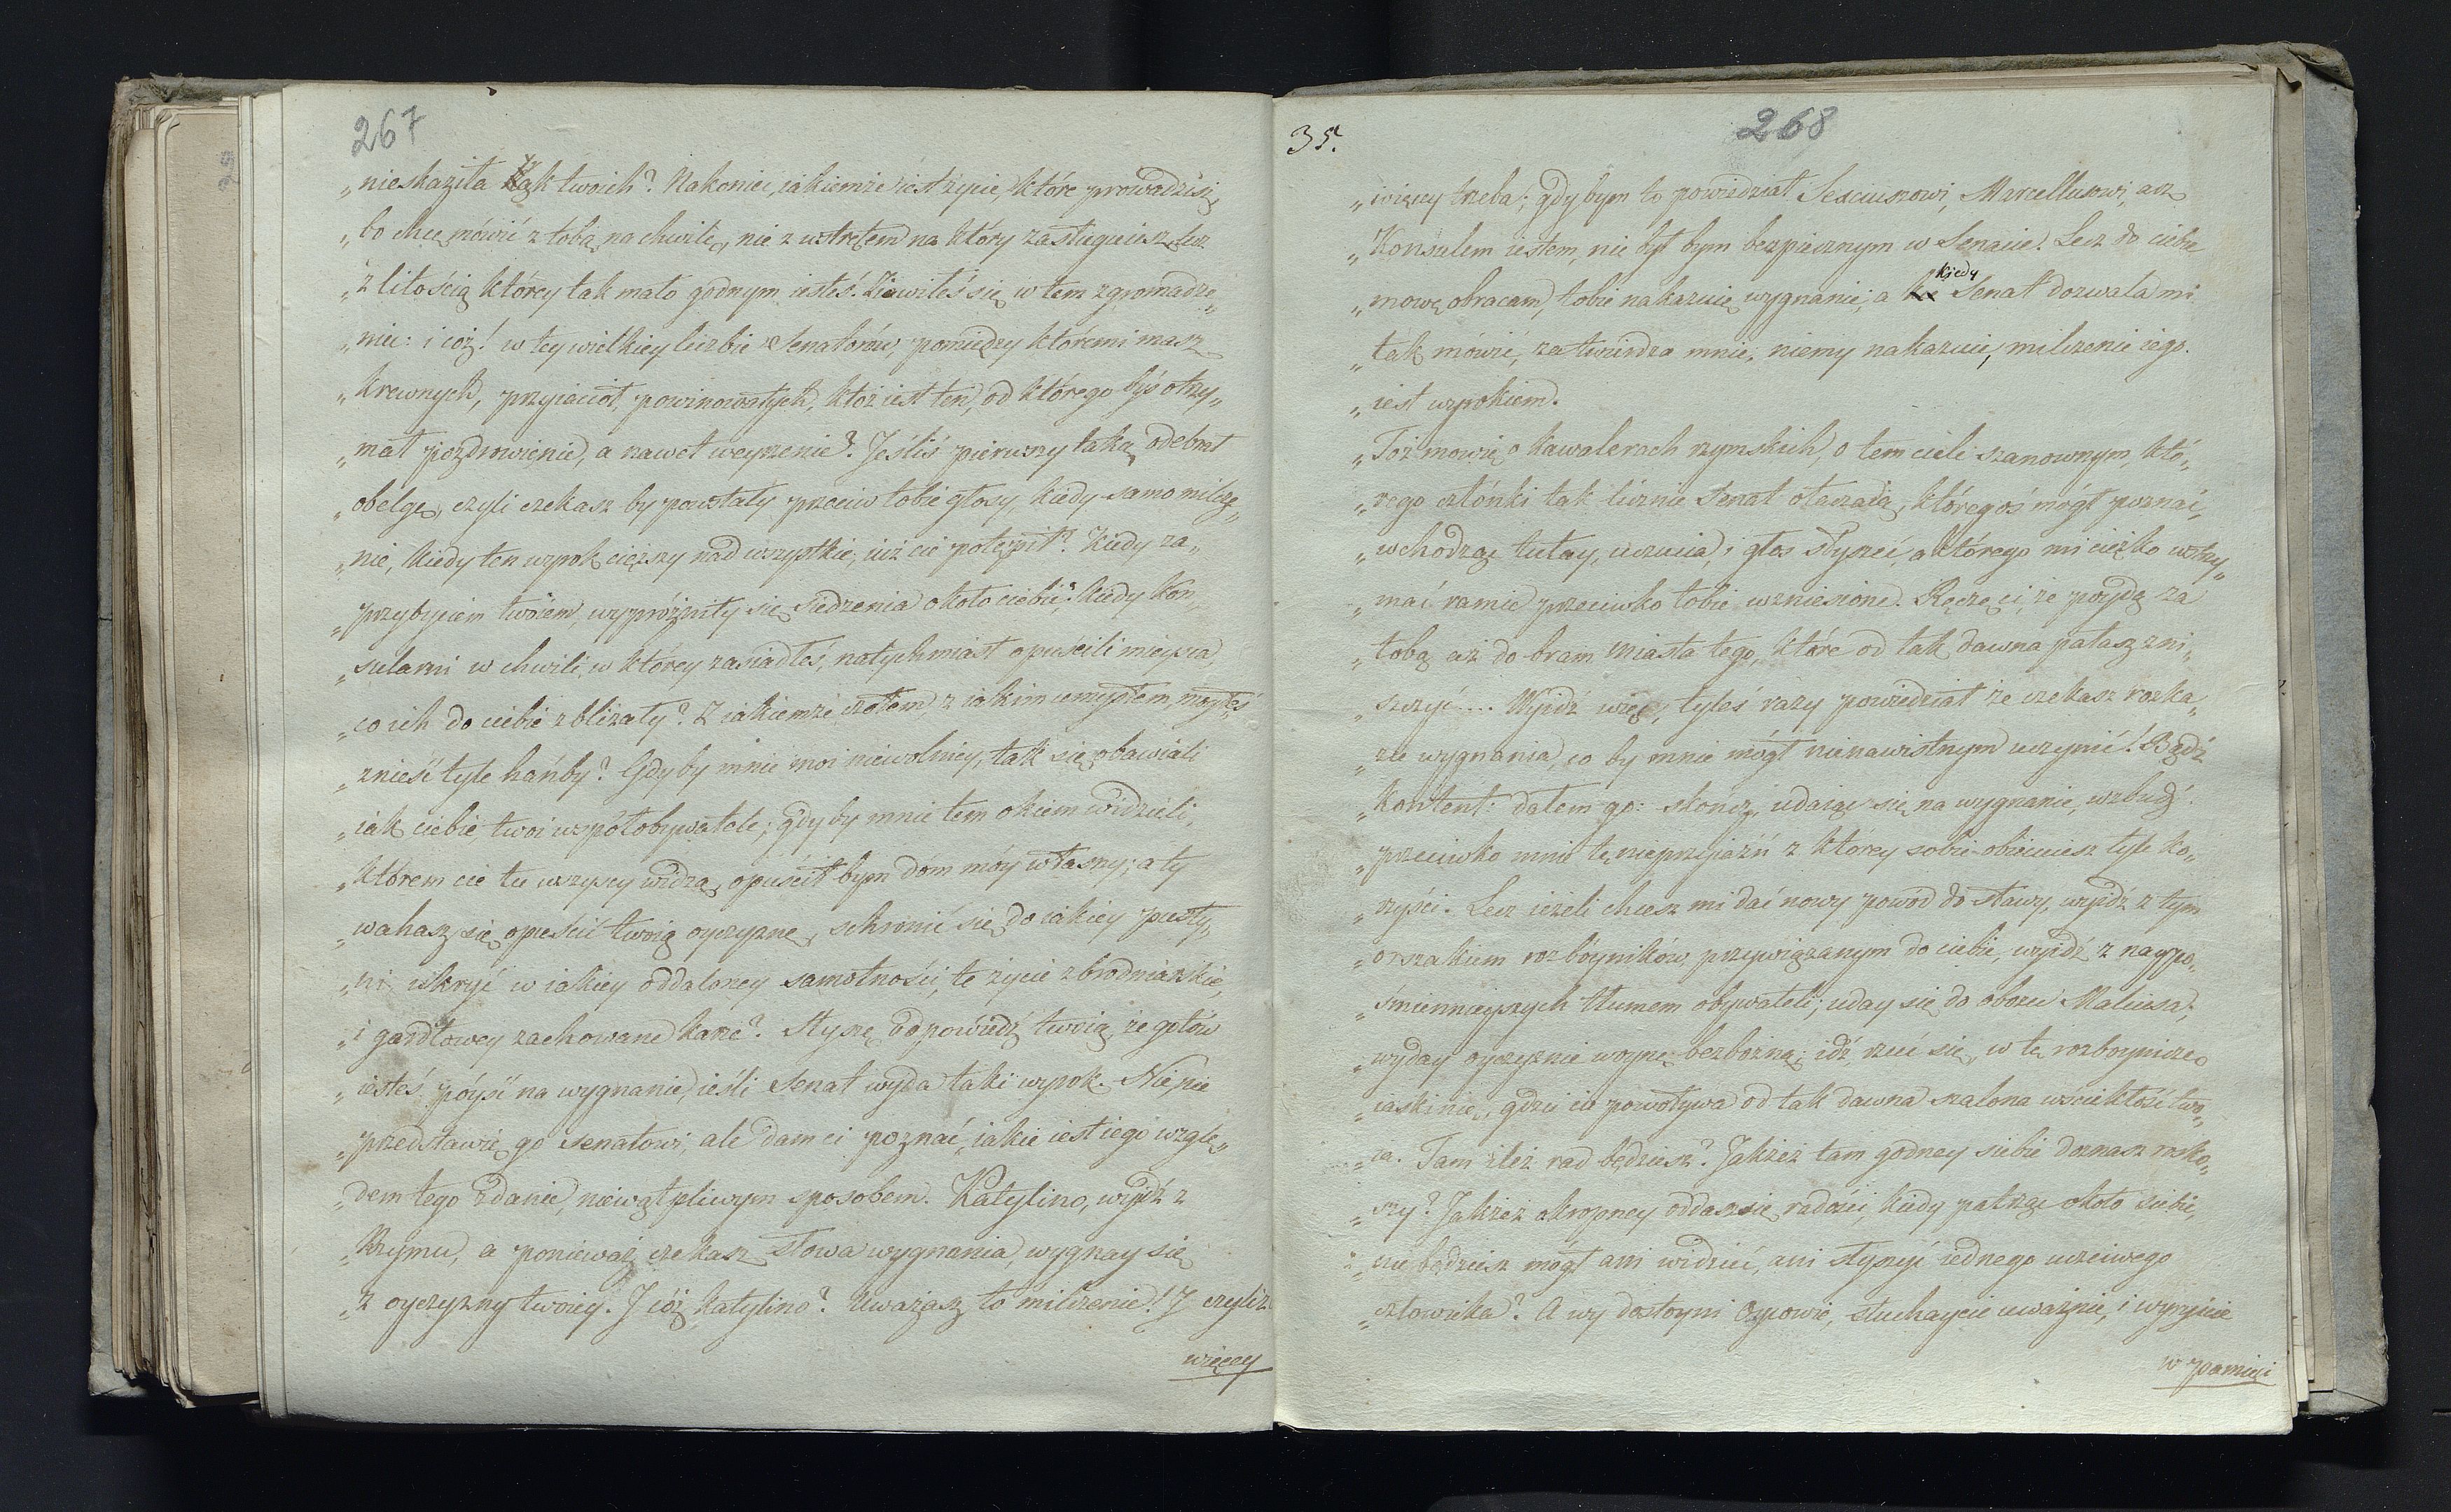 267
„nieskaziła Rąk twoich? Nakoniec, iakiemże iest życie, które prowadzisz,
„bo chcę mówić z tobą na chwilę, nie z wstrętem na który zasługuiesz, lecz
„z litością którey tak mało godnym iesteś. Ziawiłeś się w tem zgromadze„
„niu: i cóż! w tey wielkiey liczbie Senatorów, pomiędzy któremi masz
„krewnych, przyiaciół, powinowatych, któż iest ten, od którego byś otrzy„
„mał pozdrowienie, a nawet weyrzenie? Jeśliś pierwszy taką odebrał
„obelgę, czyli czekasz by powstały przeciw tobie głosy, kiedy samo milcze„
„nie, kiedy ten wyrok cięższy nad wszystkie, iuż cie potępił? Kiedy za„
„przybyciem twoiem, wypróżniły się siedzenia około ciebie; kiedy Kon„
„sularni w chwili, w którey zasiadłeś, natychmiast opuścili mieysca,
„co ich do ciebie zbliżały? Z iakiemże czołem, z iakim umysłem, mogłeś
„znieść tyle hańby? Gdyby mnie moi niewolnicy, tak się obawiali
„iak ciebie twoi współobywatele; gdyby mnie tem okiem widzieli,
„którem cie tu wszyscy widzą, opuścił bym dóm móy własny; a ty
„wahasz się opuścić twoią oyczyznę, schronić się do iakiey pusty„
„ni i skryć w iakiey oddaloney samotności, te życie zbrodniarskie,
„i gardłowey zachowane karze? Słyszę odpowiedź twoią, że gotów
„iesteś póyść na wygnanie, ieśli Senat wyda taki wyrok. Nie, nie
„przedstawię go Senatowi, ale dam ci poznać, iakie iest iego wzglę„
„dem tego zdanie, niewątpliwym sposobem. Katylino, wyjdź z
„Rzymu, a ponieważ czekasz słowa wygnania, wygnay się
„z oyczyzny twoiey. J cóż Katylino? Uważasz to milczenie! J czyliż
więcey
35.
268
„więcey trzeba; gdy bym to powiedział Sexciuszowi, Marcellusowi, acz
„Konsulem iestem, nie był bym bezpiecznym w Senacie. Lecz do ciebie
„mowę obracam, tobie nakazuię wygnanie; a kiedy Senat dozwala mi
„tak mówić, zatwierdza mnie, niemy nakazuie, milczenie iego
„iest wyrokiem.
„Toż mowię o Kawalerach rzymskich, o tem ciele szanownym, któ„
„rego członki tak licznie Senat otaczaią, któregoś mógł poznać,
„wchodząc tutay, uczucia, i głos słyszeć, a którego mi ciężko wstrzy„
„mać ramie przeciwko tobie wzniesione. Ręczę ci, że póydą za
„tobą aż do bram Miasta tego, które od tak dawna pałasz zni„
„szczyć.... Wyidź więc, tyleś razy powiedział że czekasz rozka„
„zu wygnania, co by mnie mógł nienawistnym uczynić! Bądź
„kontent: dałem go: skończ, udaiąc się na wygnanie, wzbudź
„przeciwko mnie tę nieprzyjaźń z którey sobie obiecuiesz tyle ko„
„rzyści. Lecz ieżeli chcesz mi dać nowy powód do sławy, wyidź z tym
„orszakiem rozbóyników, przywiązanym do ciebie, wyidź z nayzło„
„śmiennieyszych tłumem obywateli; uday się do obozu Maliusa;
„wyday oyczyznie woynę bezbożną; idź, rzuć się, w tę rozboynicze
„iaskinię, gdzie cie powoływa od tak dawna szalona wściekłość two„
„ia. Tam ileż rad będziesz? Jakżeż tam godney siebie doznasz rosko„
„szy? Jakżeż okropney oddasz się radości, kiedy patrząc około siebie,
„nie będziesz mógł ani widzieć, ani słyszyć iednego uczciwego
„człowieka? A wy dostoyni Oycowie, słuchaycie uważnie, i wyryicie
w pamięci